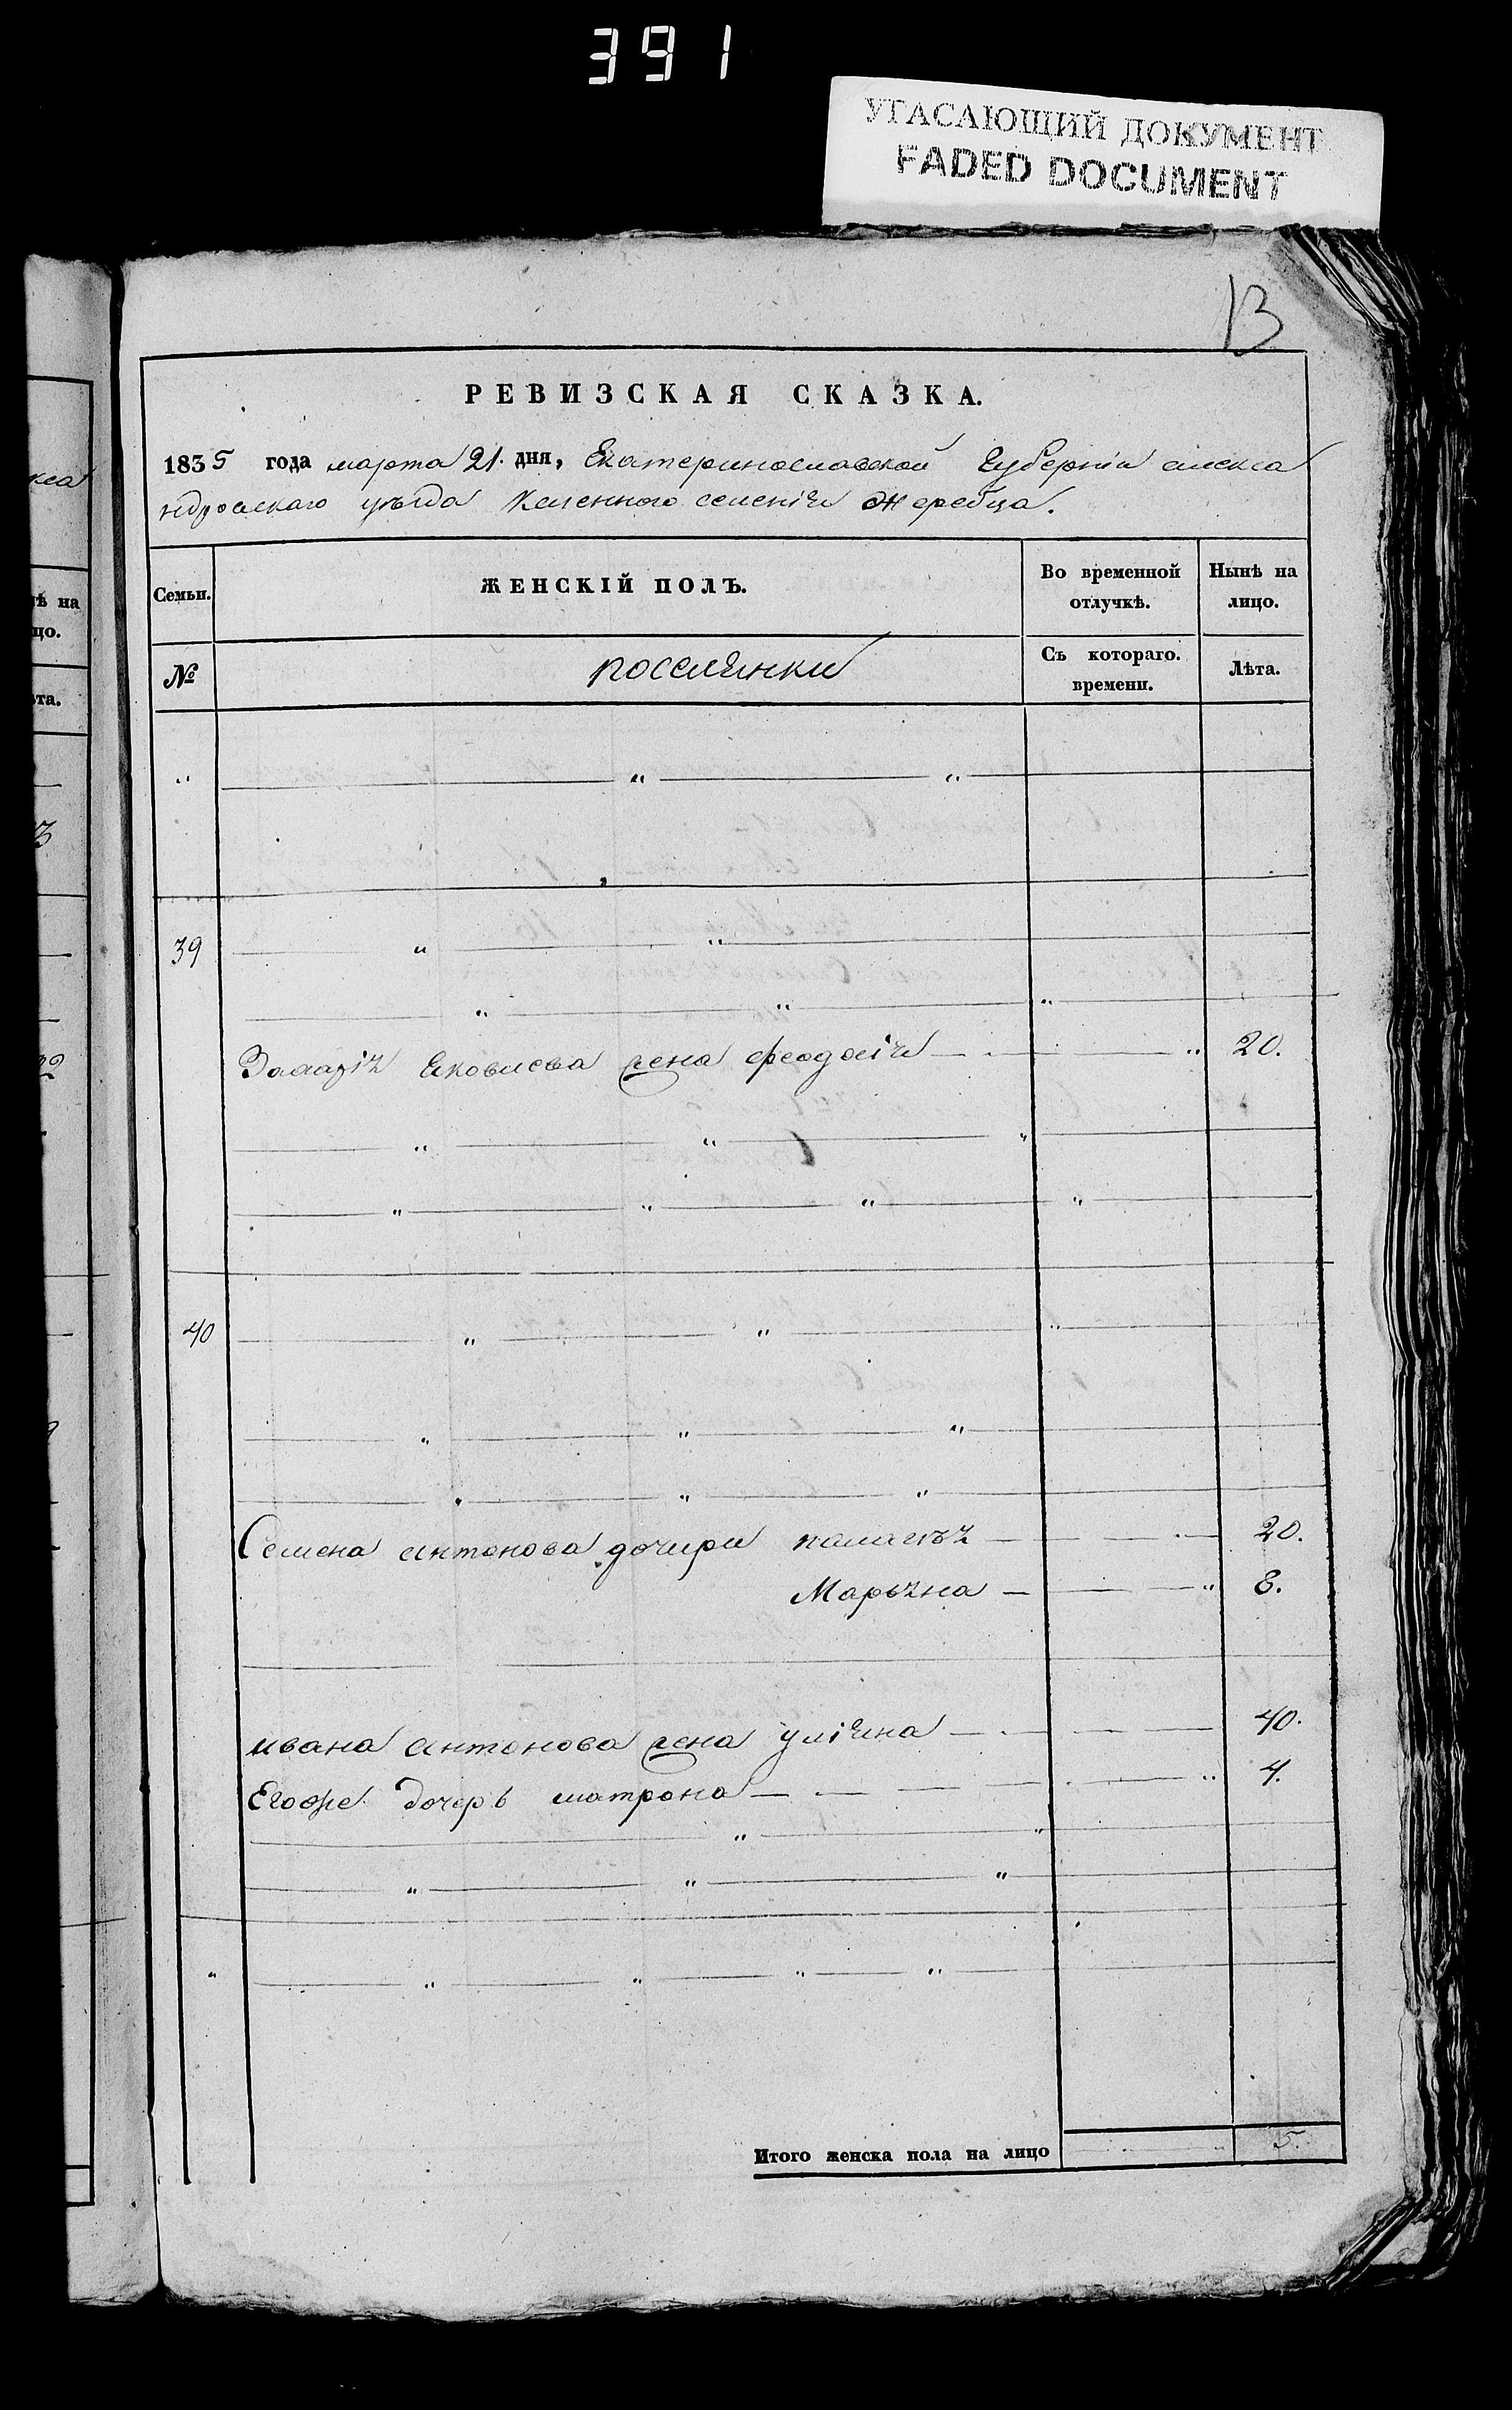 391
УГАСАЮЩИЙ ДОКУМЕНТ
FADED DOCUMENT
13
РЕВИЗСКАЯ СКАЗКА.
1835 года марта 21. дня, Екатеринославской Губерніи алекса
ндровскаго уезда Казенного селенія Жеребца.
Семьи. ЖЕНСКІЙ ПОЛЪ. Во временной отлучкѣ. Нынѣ на лицо.
№ поселянки Съ котораго. времени. Лѣта.
39
Яковлева жена феодосія 20.
40
Семена антонова дочери палагея 20.
Марьяна 8.
ивана антонова жена уліяна 40.
Егоже дочерь матрона 4.
Итого женска пола на лицо 5.